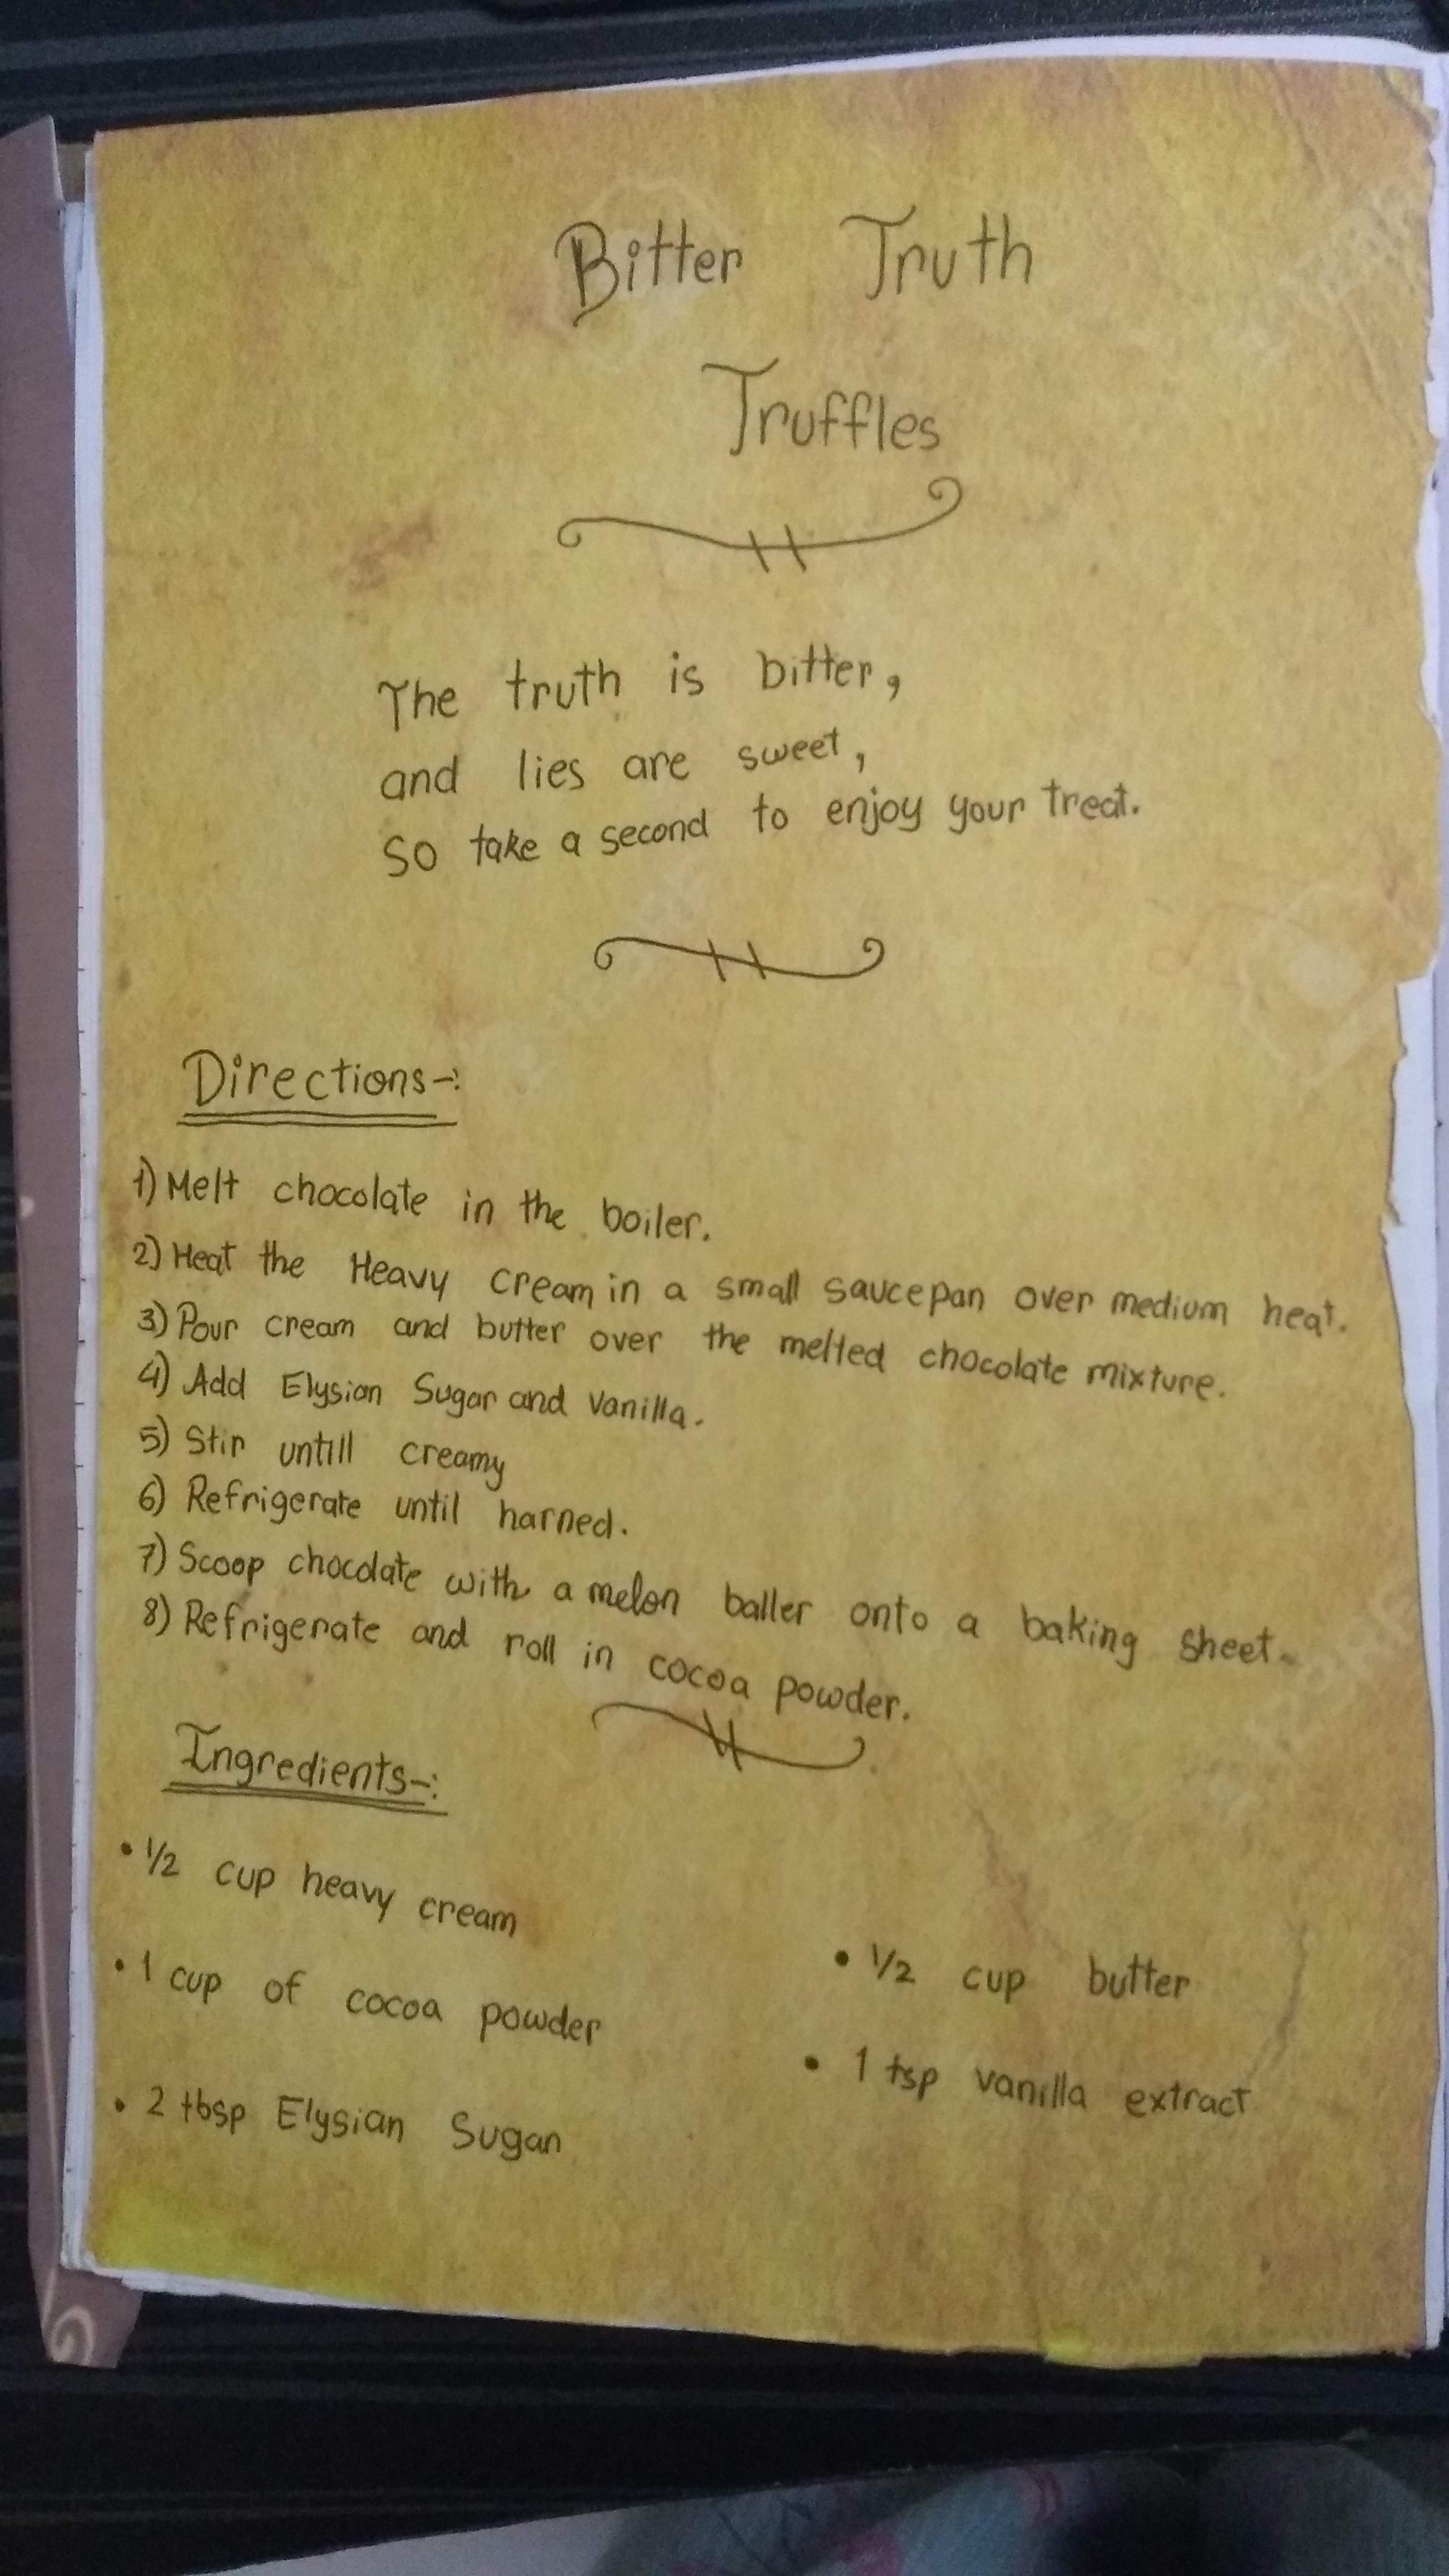 Bitter Truth
Truffles
The truth is bitter,
and lies are sweet,
So take a second to enjoy your treat.
Directions-:
1) Melt chocolate in the boiler.
2) Heat the Heavy cream in a small saucepan over medium heat.
3) Pour cream and butter over the melted chocolate mixture.
4) Add Elysian Sugar and Vanilla.
5) Stir untill creamy
6) Refrigerate until harned.
7) Scoop chocolate with a melon baller onto a baking sheet.
8) Refrigerate and roll in cocoa powder.
Ingredients-:
• 1/2 cup heavy cream
• 1 cup of cocoa powder
• 2 tbsp Elysian Sugar
• 1/2 cup butter
• 1 tsp vanilla extract